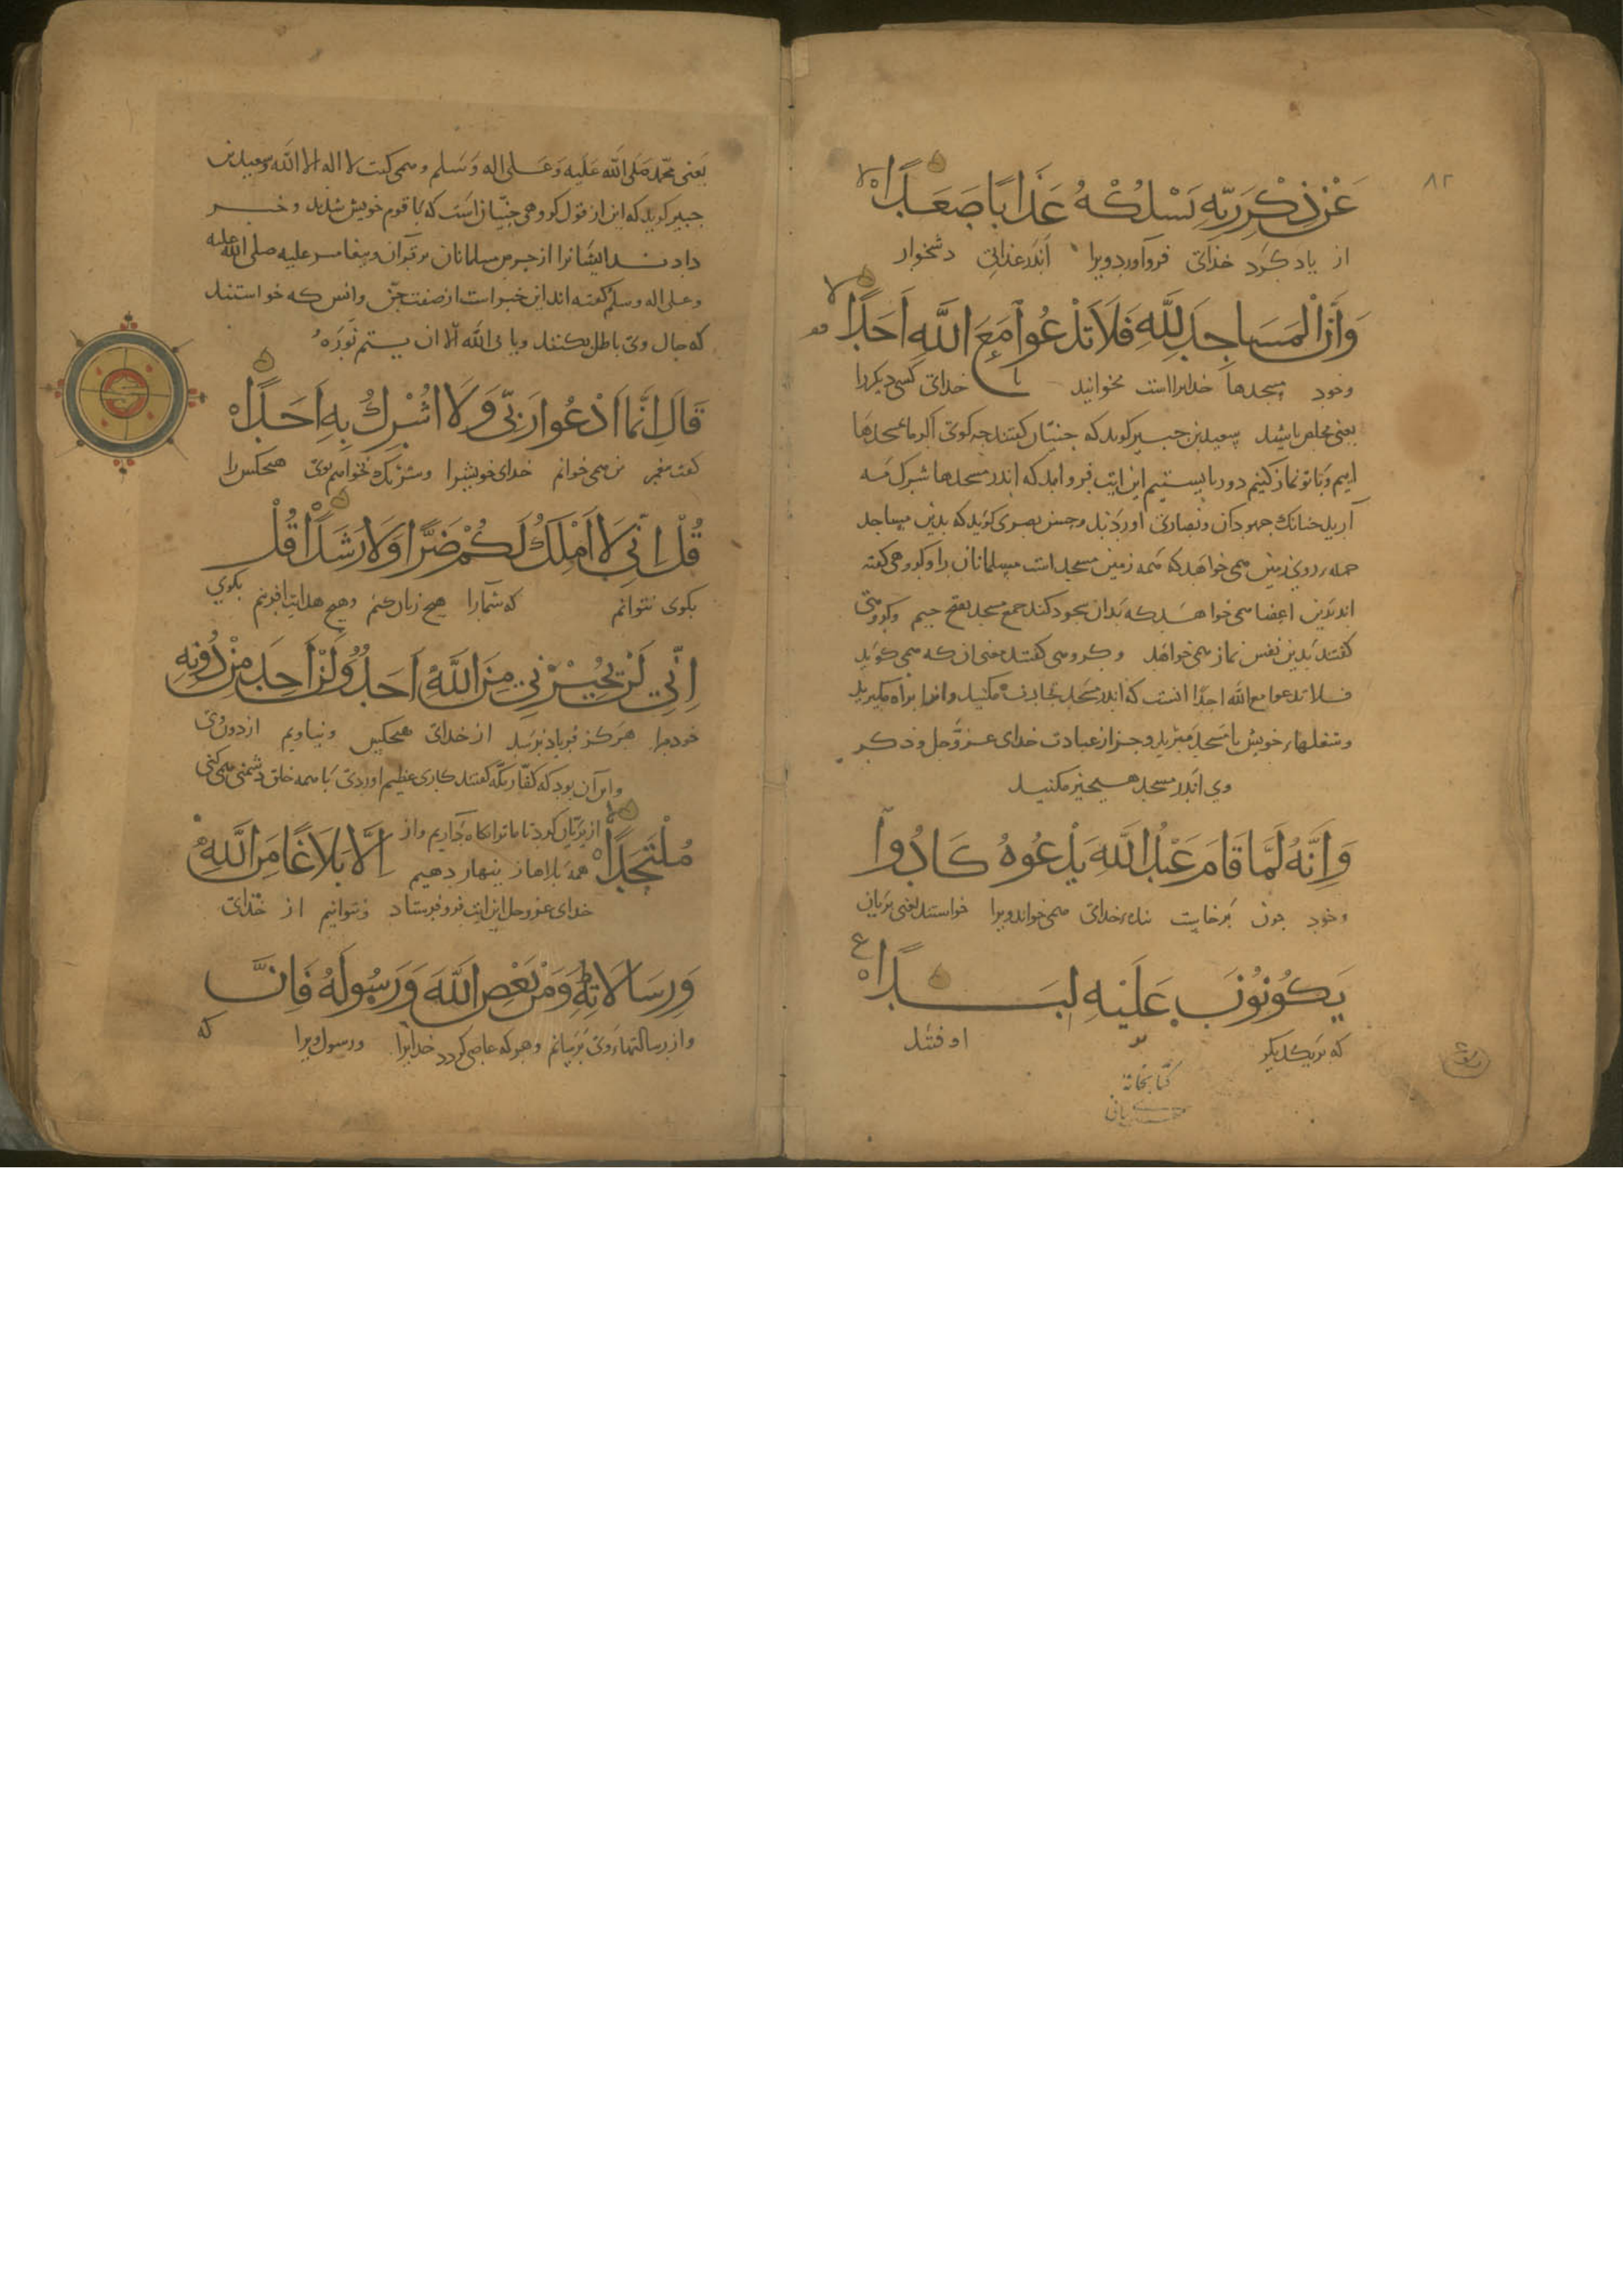 ۸۲
عَنْ ذِكْرِ رَبِّهِ نَسْلُكْهُ عَذَابًا صَعَدًا لا
از یاد کرد خذای فروآورد ویرا اندر عذابی دشخوار
وَأَنَّ الْمَسَاجِدَ لِلَّهِ فَلَا تَدْعُوا مَعَ اللَّهِ أَحَدًا لا
وخود مسجدها خدایرا است مخوانید با خدای کسی دیکررا
یعنی مخلص باشید سعید بن جبیر کوید که جنیان کفتند چه کوی اکر ما بمسجدها
اییم و با تو نماز کنیم دور بایستیم این ایت فرو امد که اندر مسجدها شرک مه
آرید چنانک جهودان و نصاری آوردند و حسن بصری کوید که بدین مساجد
جمله روی زمین می خواهد که همه زمین مسجد است مسلمانان را و کروهی کفته
اند بدین اعضا می خواهد که بدان سجود کنند جمع مسجد بفتح جیم و کروهی
کفتند بدین نفس نماز می خواهد و کروهی کفتند معنی ان که می کوید
فلا تدعوا مع الله احدا انست که اندر مسجد تجارت مکنید و انرا براه مکیرید
وشغلهاء خویش با مسجد مبرید و جز از عبادت خدای عز وجل و ذکر
وی اندر مسجد هیچیز مکنید
وَأَنَّهُ لَمَّا قَامَ عَبْدُ اللَّهِ يَدْعُوهُ كَادُوا
وخود چون برخاست بنده خدای می خواند ویرا خواستند یعنی پریان
يَكُونُونَ عَلَيْهِ لِبَدًا ع
که بر یکدیکر اوفتند
کتابخانه
یعنی محمد صلی الله علیه وعلی اله وسلم و می کفت لا اله الا الله و سعید بن
جبیر کوید که این از قول کروهی جنیان است که با قوم خویش شدند و خبر
دادند ایشانرا از حرص مسلمانان بر قرآن و پیغامبر علیه صلی الله علیه
وعلی اله وسلم کفته اند این خبر است از صفت جن وانس که خواستند
که حال وی باطل بکنند ویابی الله الا ان یتم نوره
قَالَ إِنَّمَا أَدْعُوا رَبِّي وَلَا أُشْرِكُ بِهِ أَحَدًا
کفت پیغمبر من می خوانم خدای خویشرا وشریک نخواهم بوی هیچکس را
قُلْ إِنِّي لَا أَمْلِكُ لَكُمْ ضَرًّا وَلَا رَشَدًا قُلْ
بکوی نتوانم که شمارا هیچ زیان کنم وهیچ هدایت افرینم بکوی
إِنِّي لَنْ يُجِيرَنِي مِنَ اللَّهِ أَحَدٌ وَلَنْ أَجِدَ مِنْ دُونِهِ
خود مرا هرکز فریاد نرسد از خدای هیچکس ونیاویم از دون وی
واین آن بود که کفار مکه کفتند کاری عظیم اوردی با همه خلق دشمنی می کنی
مُلْتَحَدًا از پریان کرد تا ما ترا نکاه داریم واز همه بلاها زینهار دهیم إِلَّا بَلَاغًا مِنَ اللَّهِ
خدای عز وجل این ایت فرو فرستاد ونتوانیم از خذای
وَرِسَالَاتِهِ وَمَنْ يَعْصِ اللَّهَ وَرَسُولَهُ فَإِنَّ
واز رسالتهاء وی برسانم وهر که عاصی کردد خدایرا ورسول ویرا که